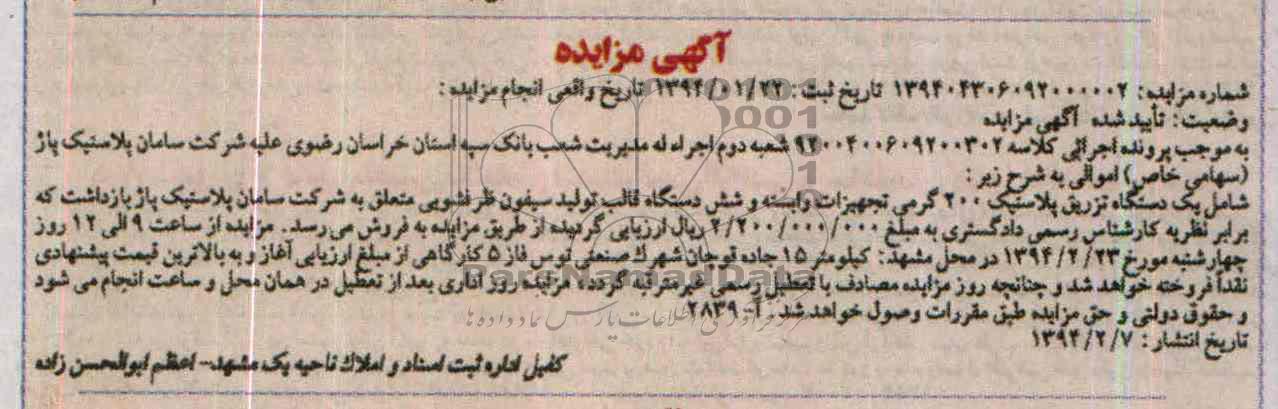 آگهی مزایده
شماره مزایده: ۱۳۹۴۰۴۳۰۶۰۹۲۰۰۰۰۰۲ تاریخ ثبت: ۱۳۹۴/۰۱/۲۲ تاریخ واقعی انجام مزایده:
وضعیت: تأیید شده آگهی مزایده
به موجب پرونده اجرائی کلاسه ۹۲۰۰۴۰۰۶۰۹۲۰۰۳۰۲ شعبه دوم اجراء له مدیریت شعب بانک سپه استان خراسان رضوی علیه شرکت سامان پلاستیک پاژ
(سهامی خاص) اموالی به شرح زیر:
شامل یک دستگاه تزریق پلاستیک ۲۰۰ گرمی تجهیزات وابسته و شش دستگاه قالب تولید سیفون ظرفشویی متعلق به شرکت سامان پلاستیک پاژ بازداشت که
برابر نظریه کارشناس رسمی دادگستری به مبلغ ۲/۲۰۰/۰۰۰/۰۰۰ ریال ارزیابی گردیده از طریق مزایده به فروش می رسد. مزایده از ساعت ۹ الی ۱۲ روز
چهارشنبه مورخ ۱۳۹۴/۲/۲۳ در محل مشهد: کیلومتر ۱۵ جاده قوچان شهرک صنعتی توس فاز ۵ کارگاهی از مبلغ ارزیابی آغاز و به بالاترین قیمت پیشنهادی
نقداً فروخته خواهد شد و چنانچه روز مزایده مصادف با تعطیل رسمی غیرمترقبه گردد، مزایده روز اداری بعد از تعطیل در همان محل و ساعت انجام می شود
و حقوق دولتی و حق مزایده طبق مقررات وصول خواهد شد. آ-۲۸۳۹
تاریخ انتشار: ۱۳۹۴/۲/۷
کفیل اداره ثبت اسناد و املاک ناحیه یک مشهد- اعظم ابوالحسن زاده
ParsNamadData